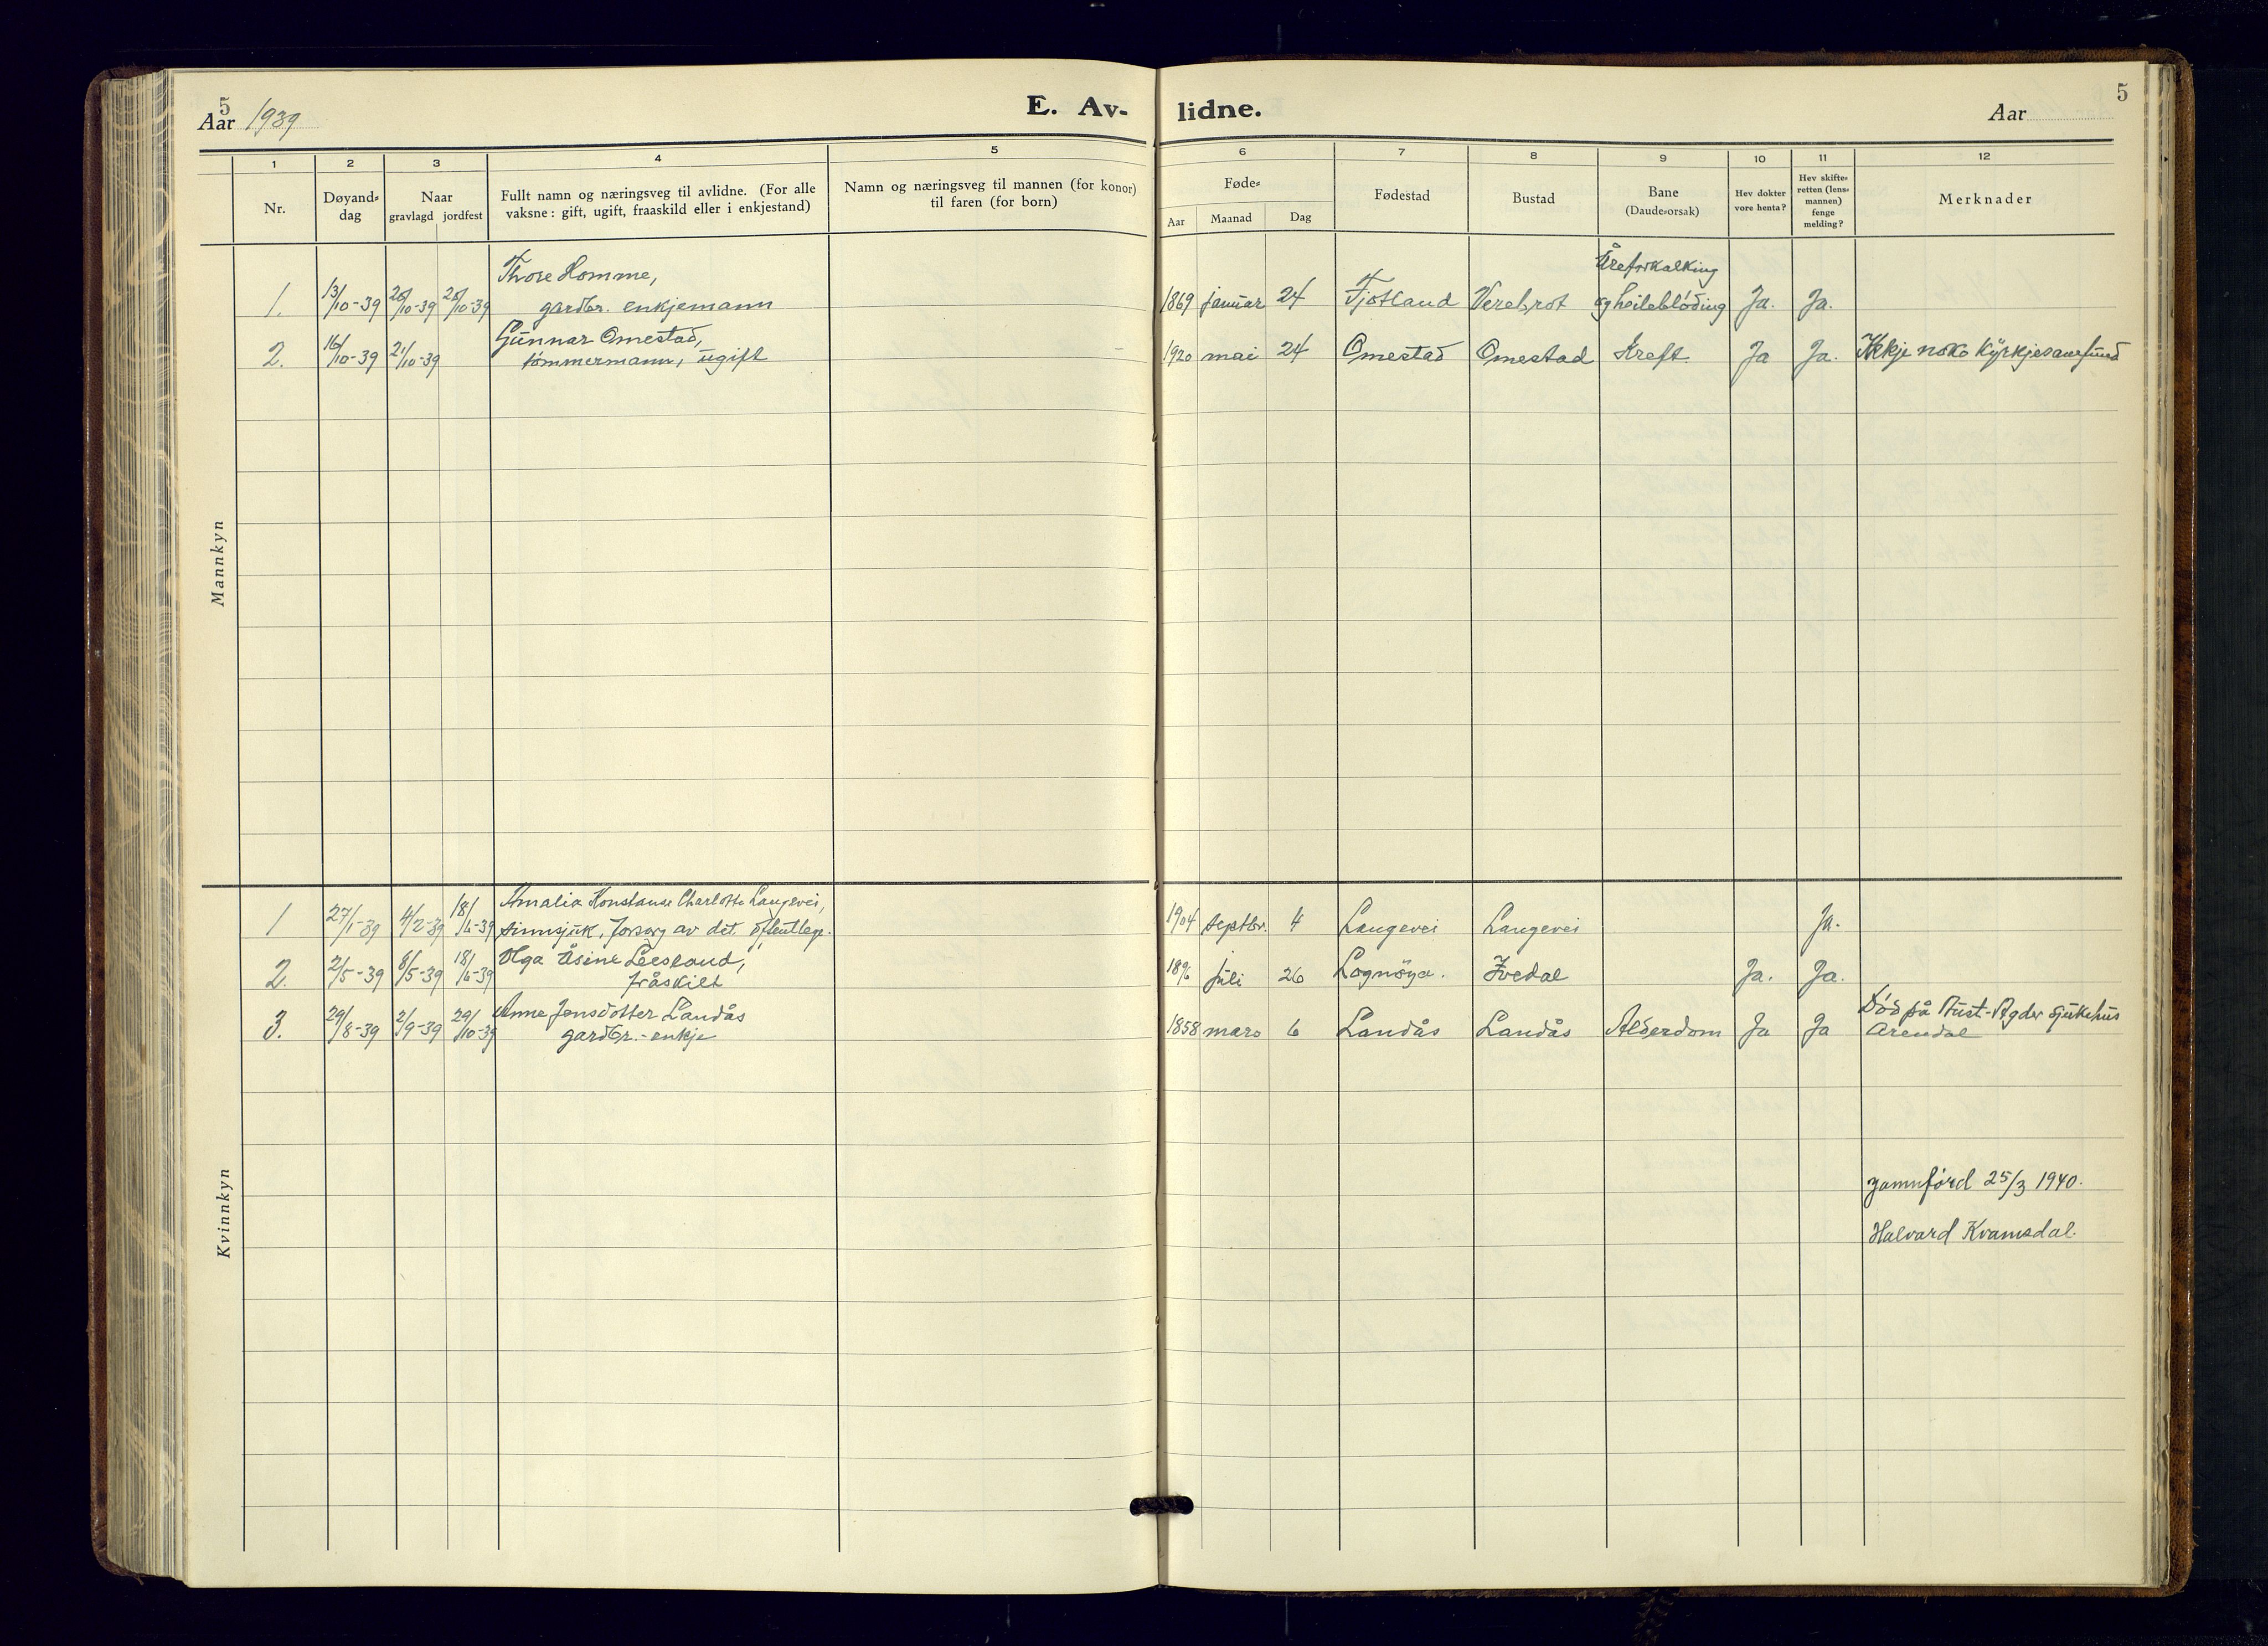 5
Aar 1939
E. Av-
lidne.
Aar
5
1 2 3 4 5 6 7 8 9 10 11 12
Nr.
Døyand-
dag
Naar
gravlagd jordfest
Fullt namn og næringsveg til avlidne. (For alle
vaksne: gift, ugift, fraaskild eller i enkjestand)
Namn og næringsveg til mannen (for konor)
til faren (for born)
Føde-
Aar Maanad Dag
Fødestad
Bustad
Bane
(Daude-orsak)
Hev dokter
vore henta?
Hev skifte-
retten (lens-
mannen)
fenge
melding?
Merknader
Mannkyn
Thore Homme, Åreforkalking
1. 13/10-39 20/10-39 20/10-39 gardbr. enkjemann 1869 januar 24 Fjotland Verebrot og heileblöding Ja. Ja.
Gunnar Omestad,
2. 16/10-39 21/10-39 tömmermann, ugift 1920 mai 24 Omestad Omestad Kreft. Ja Ja. Ikkje noko kyrkjesamfund
Kvinnkyn
Amalia Konstanse Charlotte Langevei,
1 27/1-39 4/2-39 18/6-39 sinnsjuk, forsorg av det offentlege. 1904 septbr. 4 Langevei Langevei Ja.
Olga Åsine Liesland,
2. 2/5-39 8/5-39 18/6-39 fråskilt 1896 juli 26 Lognöya. Ivedal Ja. Ja.
Anne Jensdotter Landås Död på Aust-Agder sjukehus
3. 29/8-39 2/9-39 29/10-39 gardbr.-enkje 1858 mars 6 Landås Landås Alderdom Ja Ja Arendal
Jamnförd 25/3 1940.
Halvard Kvamsdal.